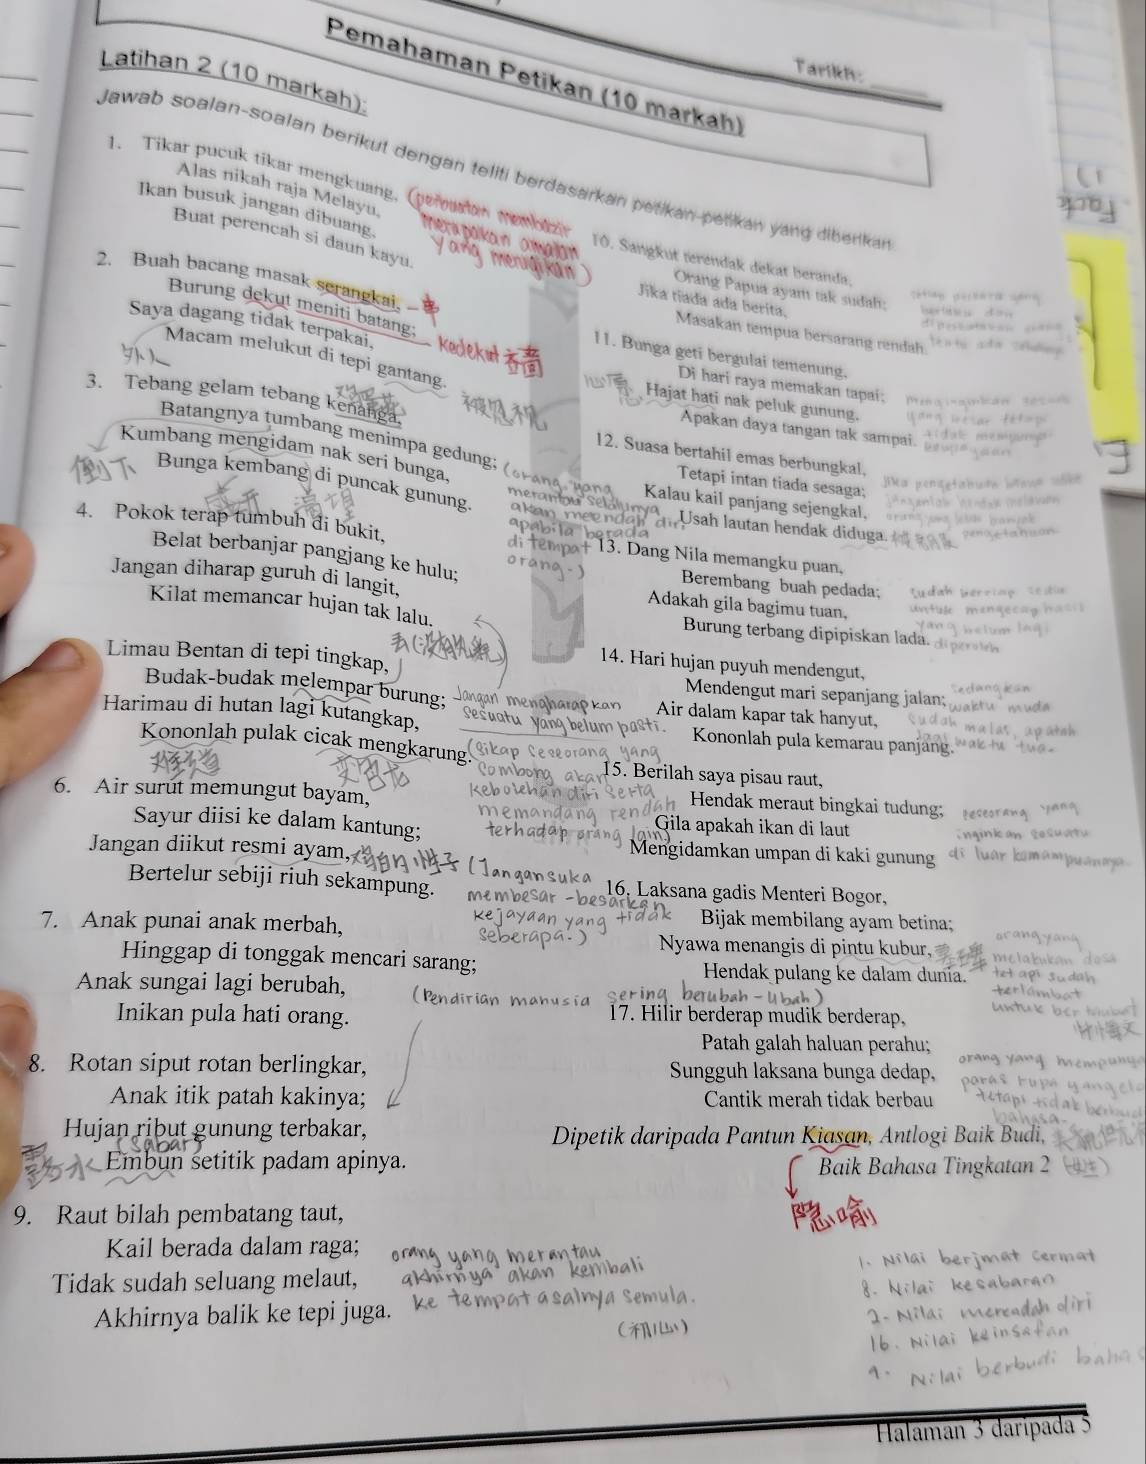 Tarikh:
Pemahaman Petikan (10 markah)
Latihan 2 (10 markah):
Jawab soalan-soalan berikut dengan teliti berdasarkan petikan-petikan yang diberikan
1. Tikar pucuk tikar mengkuang,
Alas nikah raja Melayu,
Ikan busuk jangan dibuang,
Buat perencah si daun kayu.
(perbuatan membazir
merupakan amalan
yang merugikan)
2. Buah bacang masak serangkai,
Burung dekut meniti batang;
Saya dagang tidak terpakai,
Macam melukut di tepi gantang.
一串
Kedekut
外人
3. Tebang gelam tebang kenanga,
Batangnya tumbang menimpa gedung;
Kumbang mengidam nak seri bunga,
Bunga kembang di puncak gunung.
被忽视
倒下
盛开
渴望
4. Pokok terap tumbuh di bukit,
Belat berbanjar pangjang ke hulu;
Jangan diharap guruh di langit,
Kilat memancar hujan tak lalu.
(orang yang
merantau selalunya
akan meendah diri
apabila berada
di tempat
orang.)
Limau Bentan di tepi tingkap,
Budak-budak melempar burung;
Harimau di hutan lagi kutangkap,
Kononlah pulak cicak mengkarung.
Jangan mengharapkan
sesuatu yang belum pasti.
变色龙
6. Air surut memungut bayam,
Sayur diisi ke dalam kantung;
Jangan diikut resmi ayam,
Bertelur sebiji riuh sekampung.
(Sikap seseorang yang
sombong akan
kebolehan diri serta
memandang rendah
terhadap orang lain)
鸡的性子
(Jangan suka
membesar-besarkan
kejayaan yang tidak
seberapa.)
7. Anak punai anak merbah,
Hinggap di tonggak mencari sarang;
Anak sungai lagi berubah,
Inikan pula hati orang.
(Pendirian manusia sering berubah-ubah)
8. Rotan siput rotan berlingkar,
Anak itik patah kakinya;
Hujan ribut gunung terbakar,
Embun setitik padam apinya.
(sabar)
露水
9. Raut bilah pembatang taut,
Kail berada dalam raga;
Tidak sudah seluang melaut,
Akhirnya balik ke tepi juga.
orang yang merantau
akhirnya akan kembali
ke tempat asalnya semula.
10. Sangkut terendak dekat beranda,
Orang Papua ayam tak sudah;
Jika tiada ada berita,
Masakan tempua bersarang rendah.
11. Bunga geti bergulai temenung,
Di hari raya memakan tapai;
Hajat hati nak peluk gunung,
Apakan daya tangan tak sampai.
12. Suasa bertahil emas berbungkal,
Tetapi intan tiada sesaga;
Kalau kail panjang sejengkal,
Usah lautan hendak diduga.
13. Dang Nila memangku puan,
Berembang buah pedada;
Adakah gila bagimu tuan,
Burung terbang dipipiskan lada.
sudah bersiap sedia
untuk mengecap hasil
yang belum lagi
diperoleh
14. Hari hujan puyuh mendengut,
Mendengut mari sepanjang jalan;
Air dalam kapar tak hanyut,
Kononlah pula kemarau panjang.
sedangkan
waktu muda
sudah malas, apatah
lagi waktu tua.
15. Berilah saya pisau raut,
Hendak meraut bingkai tudung;
Gila apakah ikan di laut
Mengidamkan umpan di kaki gunung
seseorang yang
inginkan sesuatu
di luar kemampuannya.
16. Laksana gadis Menteri Bogor,
Bijak membilang ayam betina;
Nyawa menangis di pintu kubur,
Hendak pulang ke dalam dunia.
orang yang
melakukan dosa
tetapi sudah
terlambat
untuk bertaubat
17. Hilir berderap mudik berderap,
Patah galah haluan perahu;
Sungguh laksana bunga dedap,
Cantik merah tidak berbau
orang yang mempunyai
paras rupa yang elok
tetapi tidak berbudi
bahasa.
Dipetik daripada Pantun Kiasan, Antlogi Baik Budi,
Baik Bahasa Tingkatan 2
隐喻
1. Nilai berjimat cermat
8. Nilai kesabaran
2. Nilai merendah diri
16. Nilai keinsafan
9. Nilai berbudi bahasa
Halaman 3 daripada 5